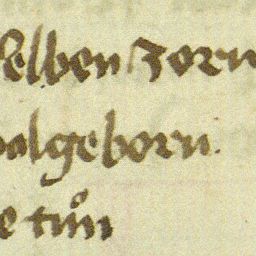 selben zorn
wolgeborn
e tuͦn